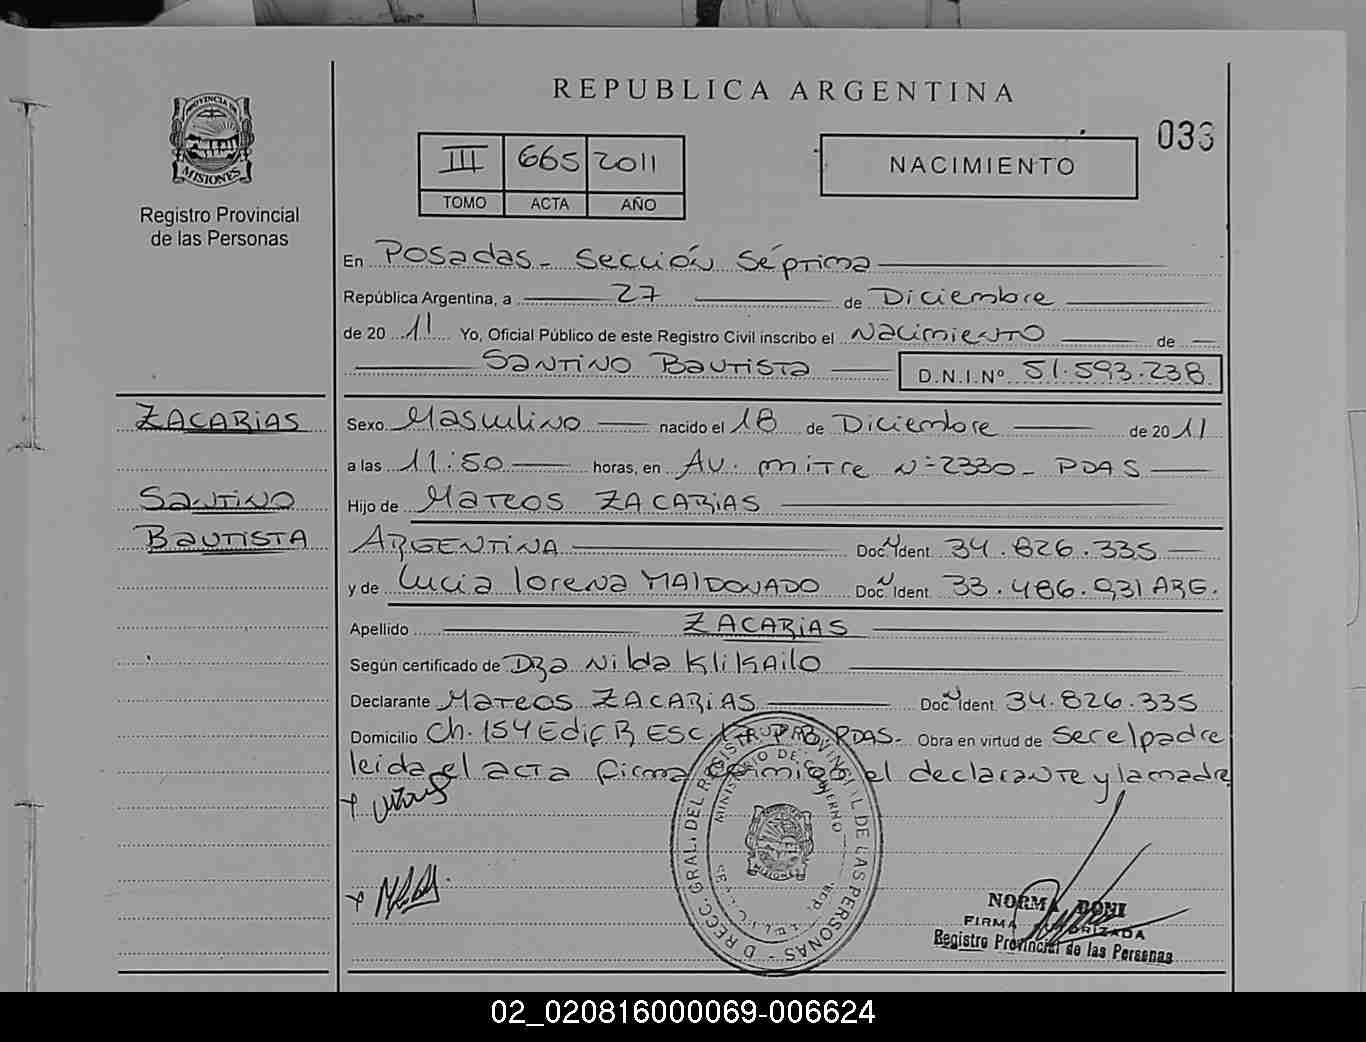 REPUBLICA ARGENTINA
PROVINCIA DE
MISIONES
Registro Provincial
de las Personas
III 665 2011
TOMO ACTA AÑO
NACIMIENTO
033
En Posadas - Sección Séptima
República Argentina, a 27 de Diciembre
de 20 11 Yo, Oficial Público de este Registro Civil inscribo el Nacimiento de
Santino Bautista D.N.I.Nº 51.593.238
ZACARIAS
Santino
Bautista
Sexo Masculino nacido el 18 de Diciembre de 20 11
a las 11:50 horas, en Av. Mitre Nº 2330 - PDAS
Hijo de Mateos ZACARIAS
ARGENTINA Doc. Ident. 34.826.335
y de Lucia lorena MALDONADO Doc. Ident. 33.486.931 ARG.
Apellido ZACARIAS
Según certificado de Dra Nilda Klikailo
Declarante Mateos ZACARIAS Doc. Ident. 34.826.335
Domicilio Ch. 154 Edif B Esc. PDAS. Obra en virtud de Ser el padre
leida el acta firma conmigo el declarante y la madre
DIRECC. GRAL. DEL REGISTRO PROVINCIAL DE LAS PERSONAS
MINISTERIO DE GOBIERNO
MISIONES
NORMA BONI
FIRMA AUTORIZADA
Registro Provincial de las Personas
02_020816000069-006624